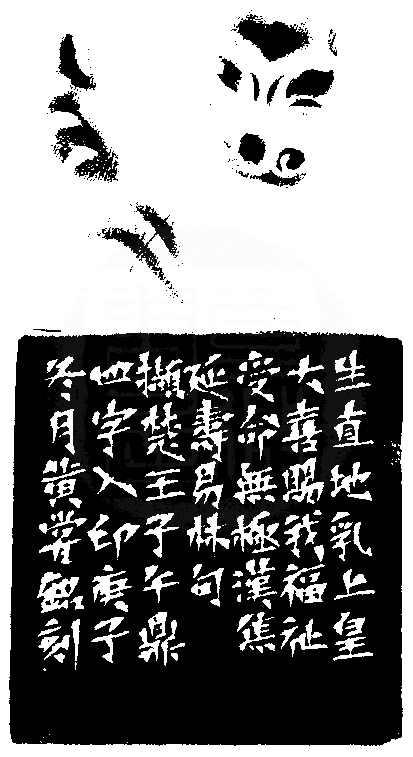 生直地乳上皇
大喜賜我福祉
受命無極漢焦
延壽易林句
擷楚王子午鼎
四字入印庚子
冬月黃嘗銘刻